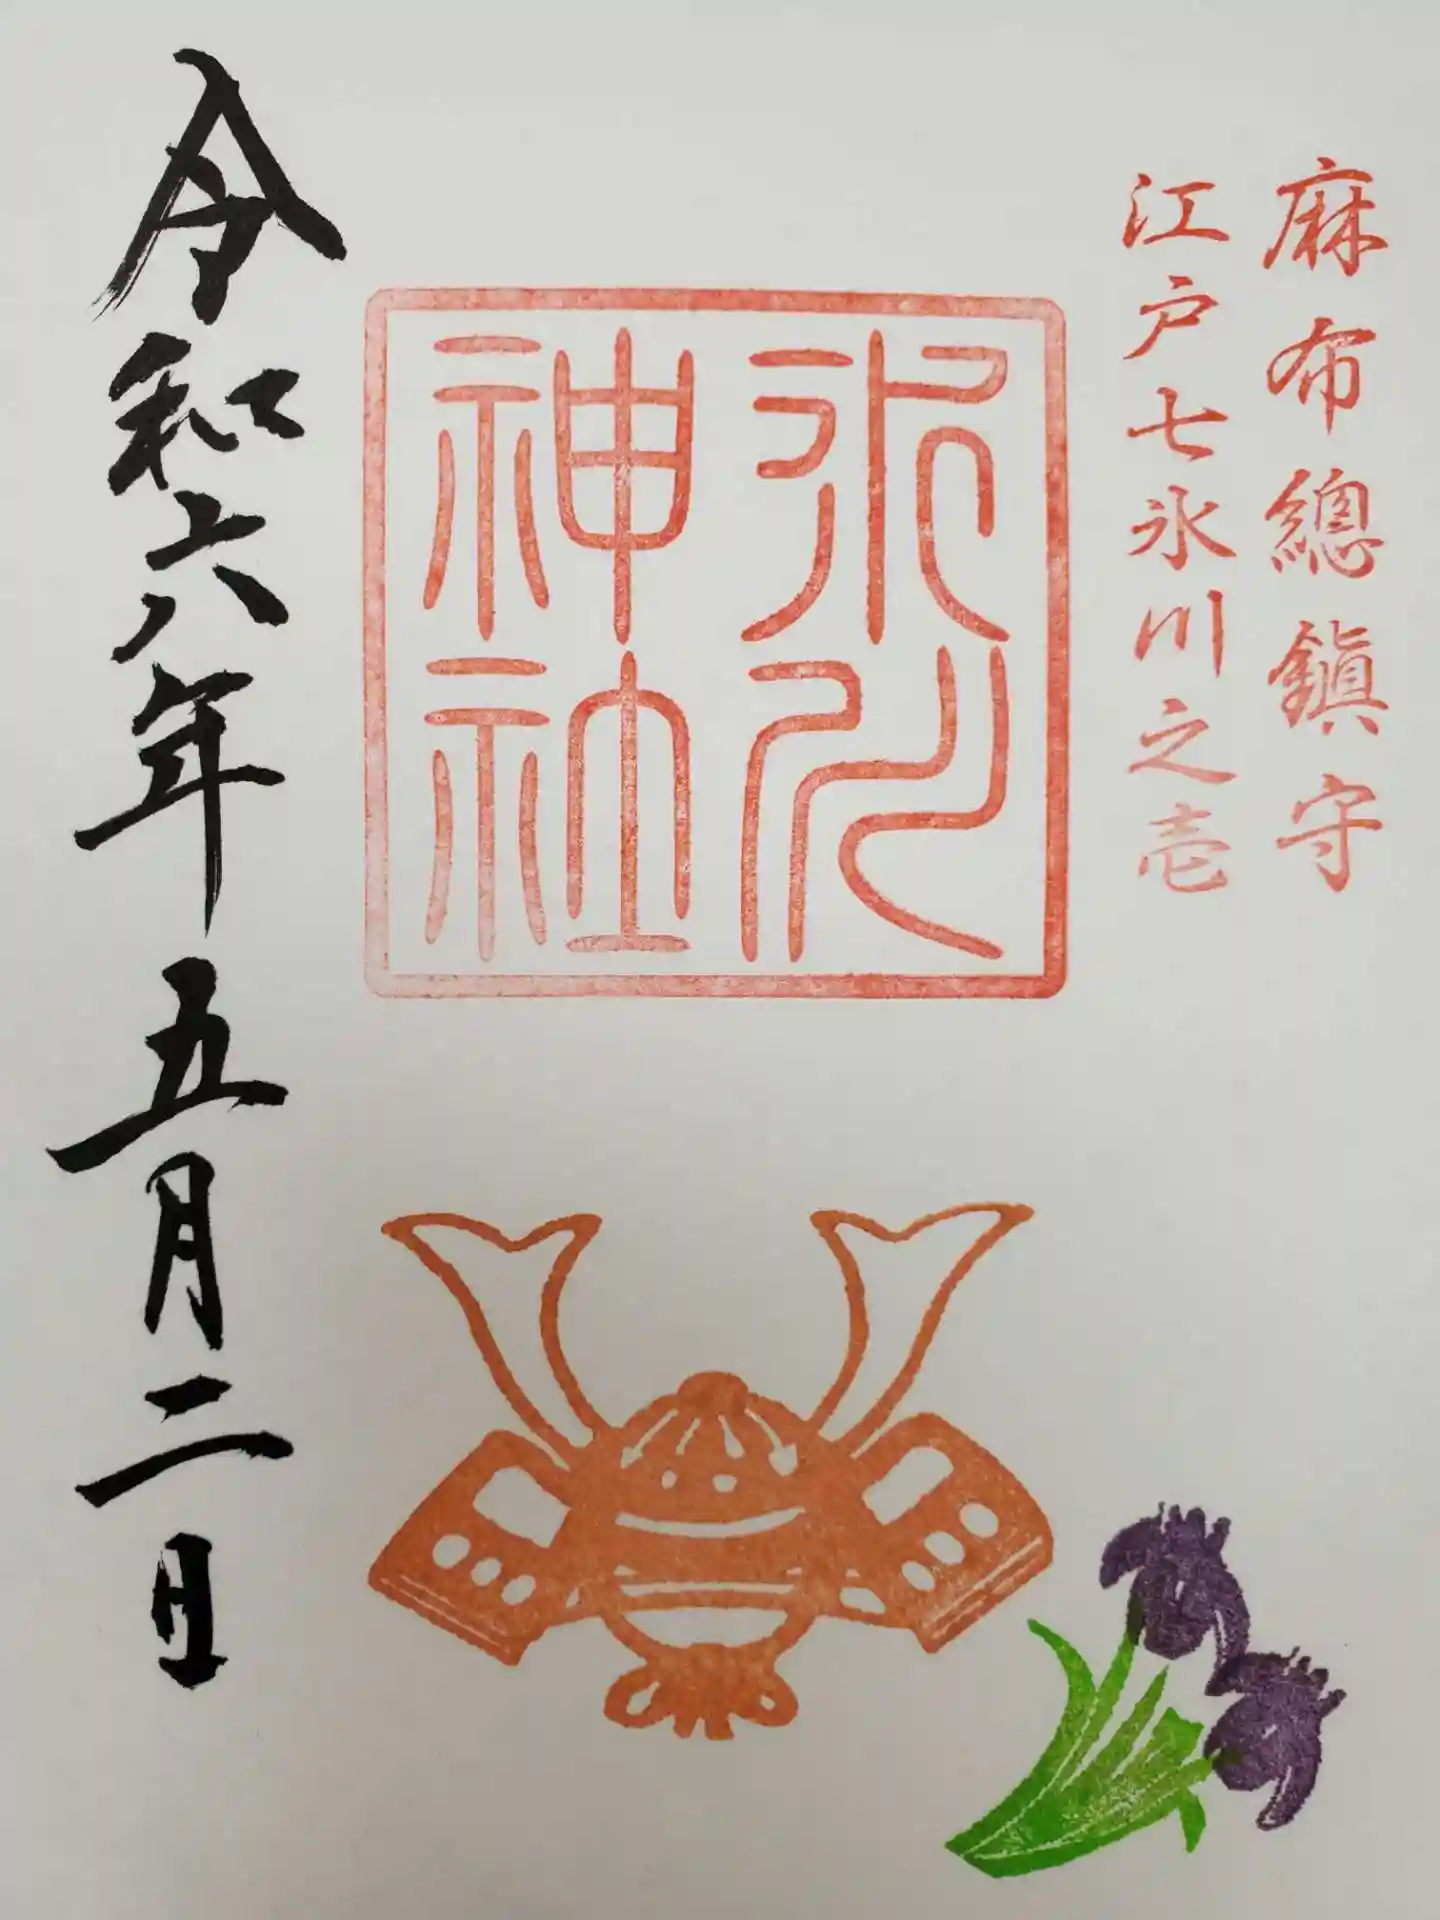 麻布總鎭守
江戸七氷川之壱
氷川
神社
令和六年五月二日